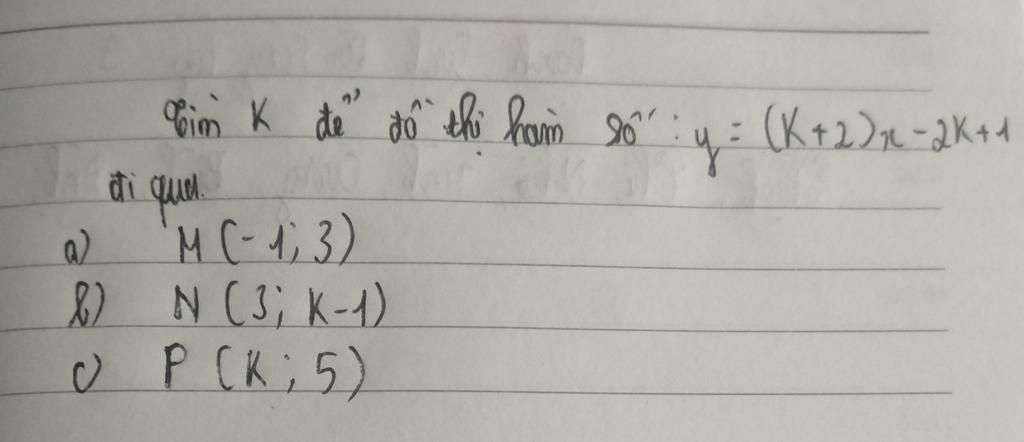 Tìm K để đồ thị hàm số : y = (K+2)x - 2K+1
đi qua.
a) M (-1; 3)
b) N (3; K-1)
c) P (K; 5)